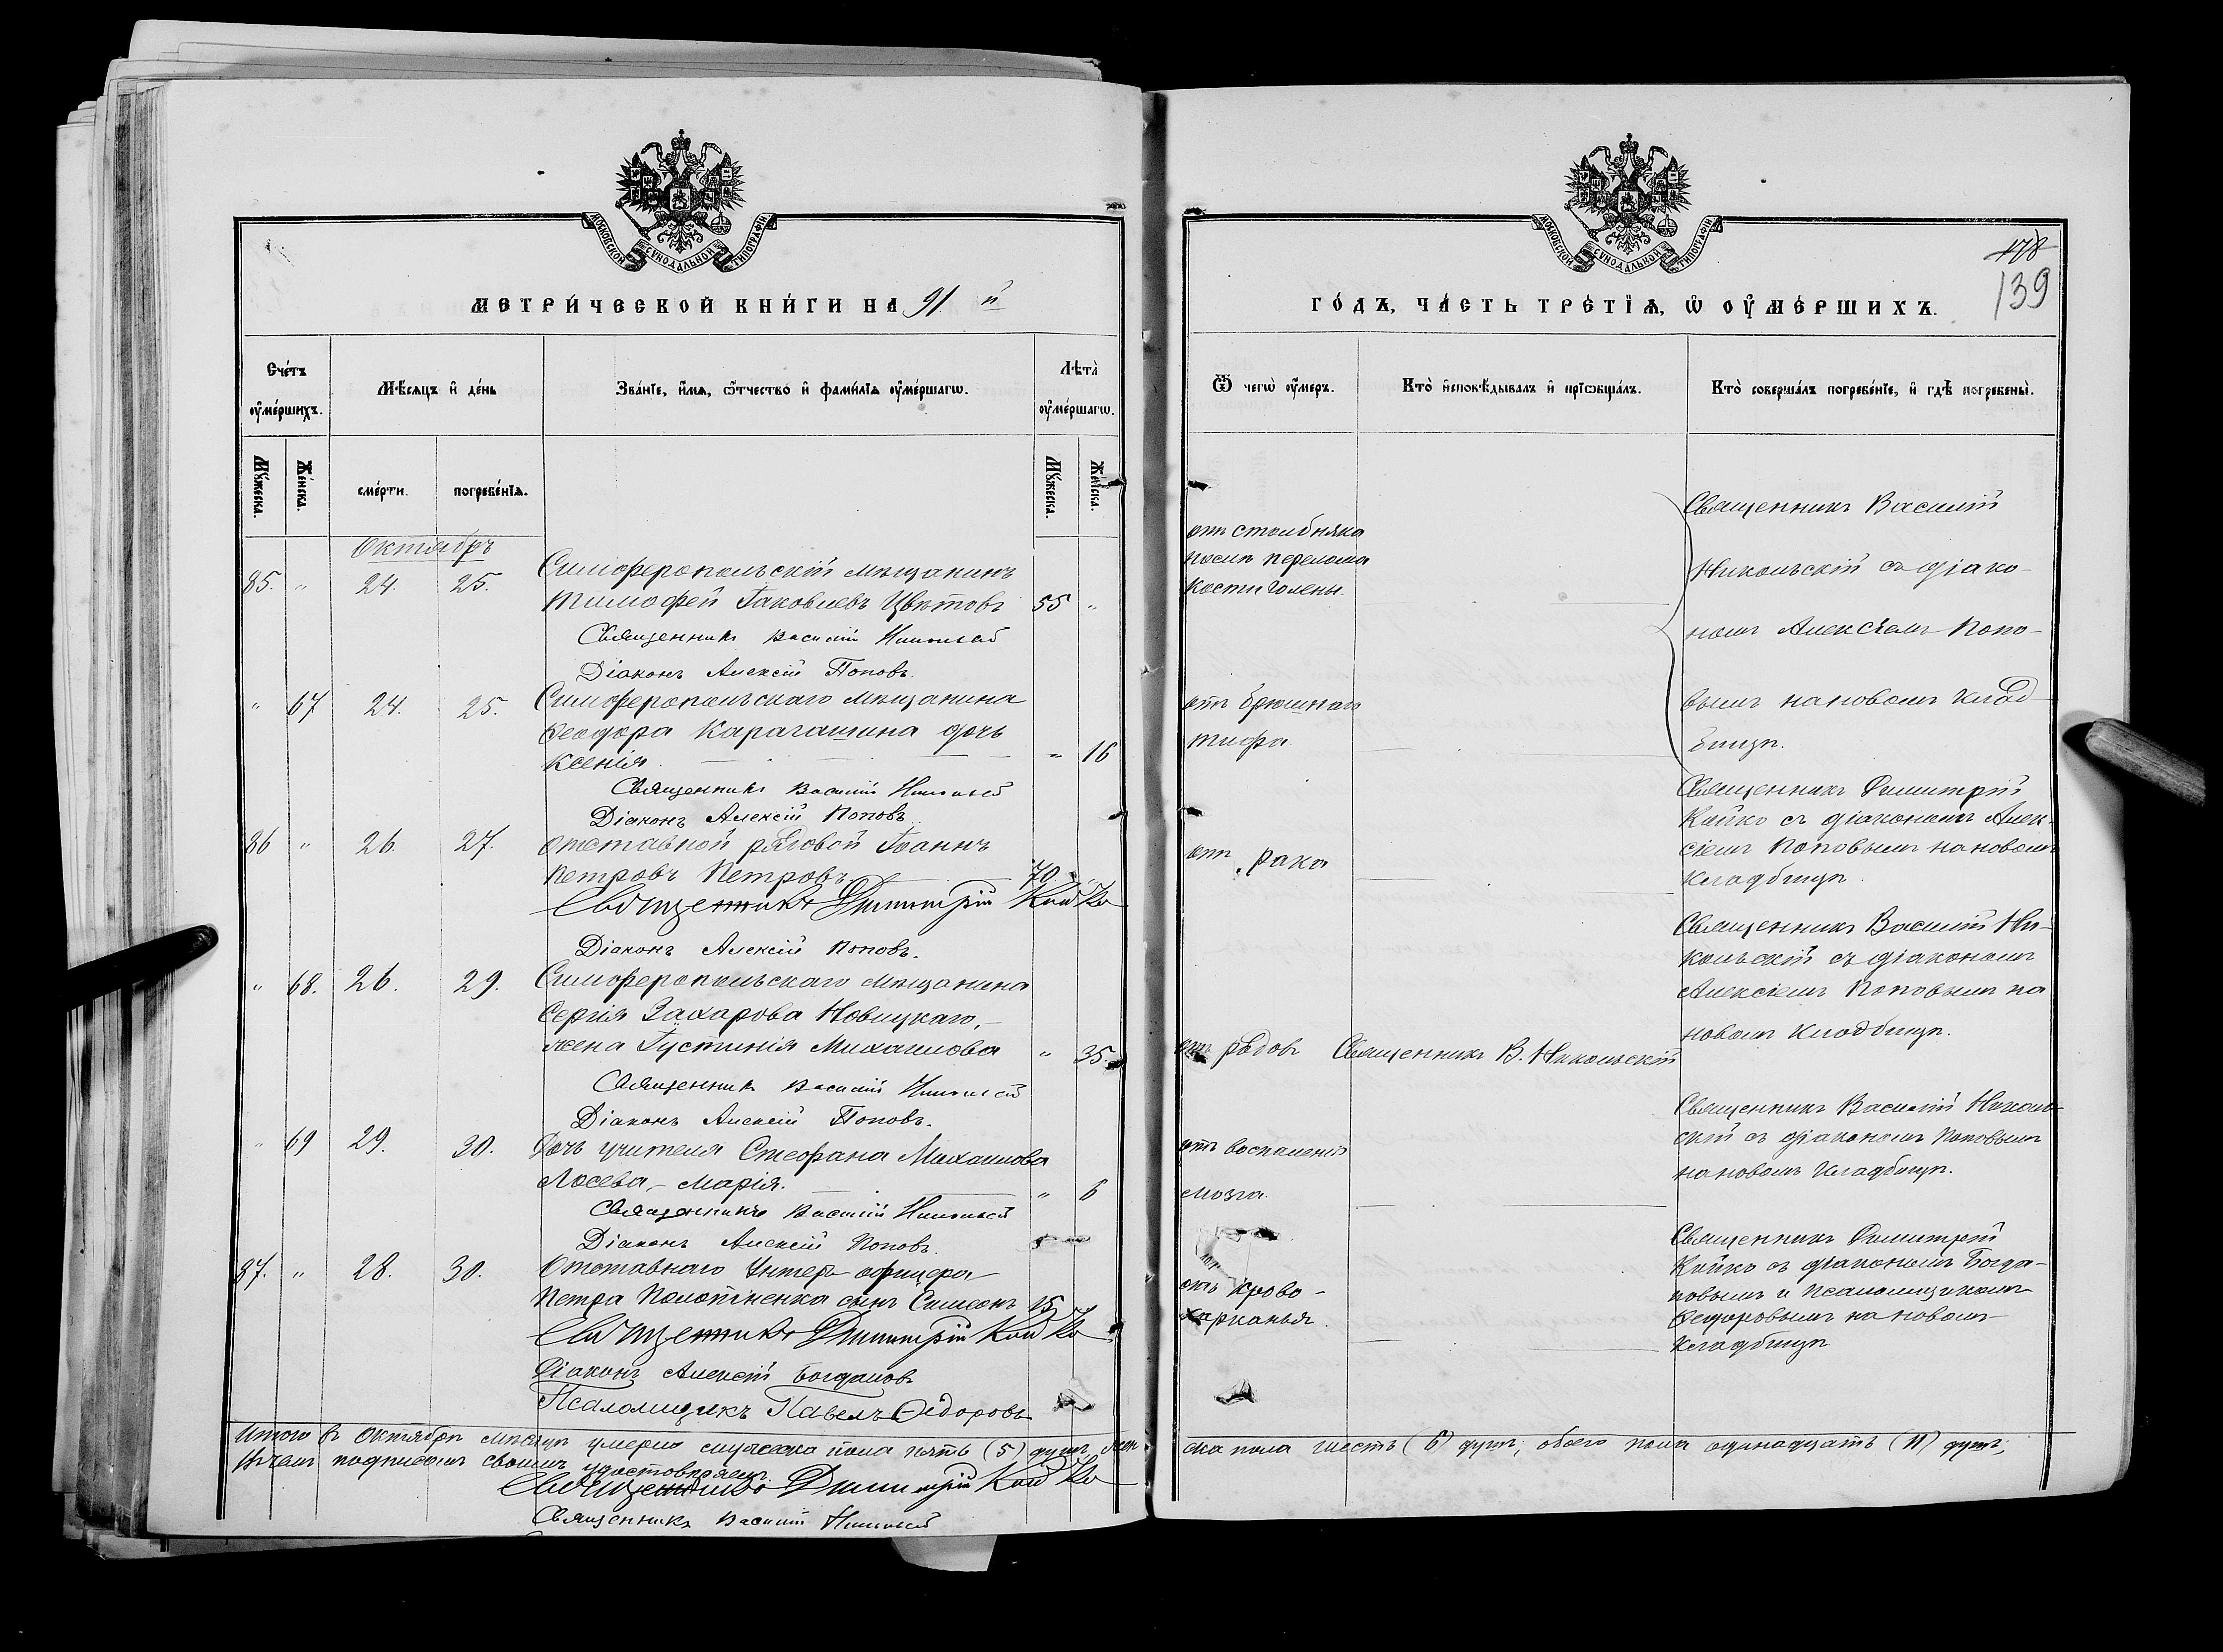 МОСКОВСКОЙ СУНОДАЛЬНОЙ ТИПОГРАФІИ
МЕТРИ́ЧЕСКОЙ КНИ́ГИ НА 91 й
Сче́тъ ᲂу҆ме́ршихъ.
Мѣ́сяцъ и҆ де́нь
Зва́нїе, и҆́мѧ, ѻ҆́тчество и҆ фами́лїѧ ᲂу҆ме́ршагѡ.
Лѣта̀ ᲂу҆ме́ршагѡ.
Мꙋ́жеска.
Же́нска.
сме́рти.
погребе́нїѧ.
Мꙋ́жеска.
Же́нска.
Октябрь
85. " 24. 25. Симферопольскій мѣщанинъ
Тимофей Іаковлевъ Цвѣтовъ 55 "
Священникъ Василій Никольскій
Діаконъ Алексій Поповъ.
" 67 24. 25. Симферопольскаго мѣщанина
Феодора Карагашина дочь
Ксенія. " 16
Священникъ Василій Никольскій
Діаконъ Алексій Поповъ.
86 " 26. 27. Отставной рядовой Іоаннъ
Петровъ Петровъ 70 "
Священникъ Димитрій Койко
Діаконъ Алексій Поповъ.
" 68. 26. 29. Симферопольскаго мѣщанина
Сергія Захарова Новицкаго,
жена Іустинія Михаилова " 35
Священникъ Василій Никольскій
Діаконъ Алексій Поповъ.
" 69 29. 30. Дочь учителя Стефана Михаилова
Лосева, – Марія. " 6
Священникъ Василій Никольскій
Діаконъ Алексій Поповъ.
87. " 28. 30. Отставнаго Унтеръ офицера
Петра сынъ Симеонъ 15
Священникъ Димитрій Койко
Діаконъ Алексій Богдановъ
Псаломщикъ Павелъ Ѳедоровъ
Итого въ Октябрѣ мѣсяцѣ умерло мужеска пола пять (5) душъ, жен
Въ чемъ подписомъ своимъ удостовѣряемъ.
Священникъ Димитрій Койко
Священникъ Василій Никольскій
МОСКОВСКОЙ СУНОДАЛЬНОЙ ТИПОГРАФІИ
178
139
ГО́ДЪ, ЧА́СТЬ ТРЕ́ТЇѦ, Ѡ҆ ОУ҆МЕ́РШИХЪ.
Ѿ чегѡ̀ ᲂу҆́меръ.
Кто̀ и҆сповѣ́дывалъ и҆ прїѡбща́лъ.
Кто̀ соверша́лъ погребе́нїе, и҆ гдѣ̀ погребены̀.
отъ столбняка
послѣ перелома
кости голены.
Священникъ Василій
Никольскій съ діако-
номъ Алексіемъ Попо-
вымъ на новомъ клад
бищѣ.
отъ брюшнаго
тифа
отъ рака
Священникъ Димитрій
Койко съ діакономъ Алек-
сіемъ Поповымъ на новомъ
кладбищѣ.
отъ родовъ Священникъ В. Никольскій
Священникъ Василій Ни-
кольскій съ діакономъ
Алексіемъ Поповымъ на
новомъ кладбищѣ.
отъ воспаленія
мозга.
Священникъ Василій Николь-
скій съ діакономъ Поповымъ
на новомъ кладбищѣ.
отъ крово-
харканья.
Священникъ Димитрій
Койко съ діакономъ Богда-
новымъ и псаломщикомъ
Федоровымъ на новомъ
кладбищѣ
ска пола шесть (6) душъ; обоего пола одинадцать (11) душъ;